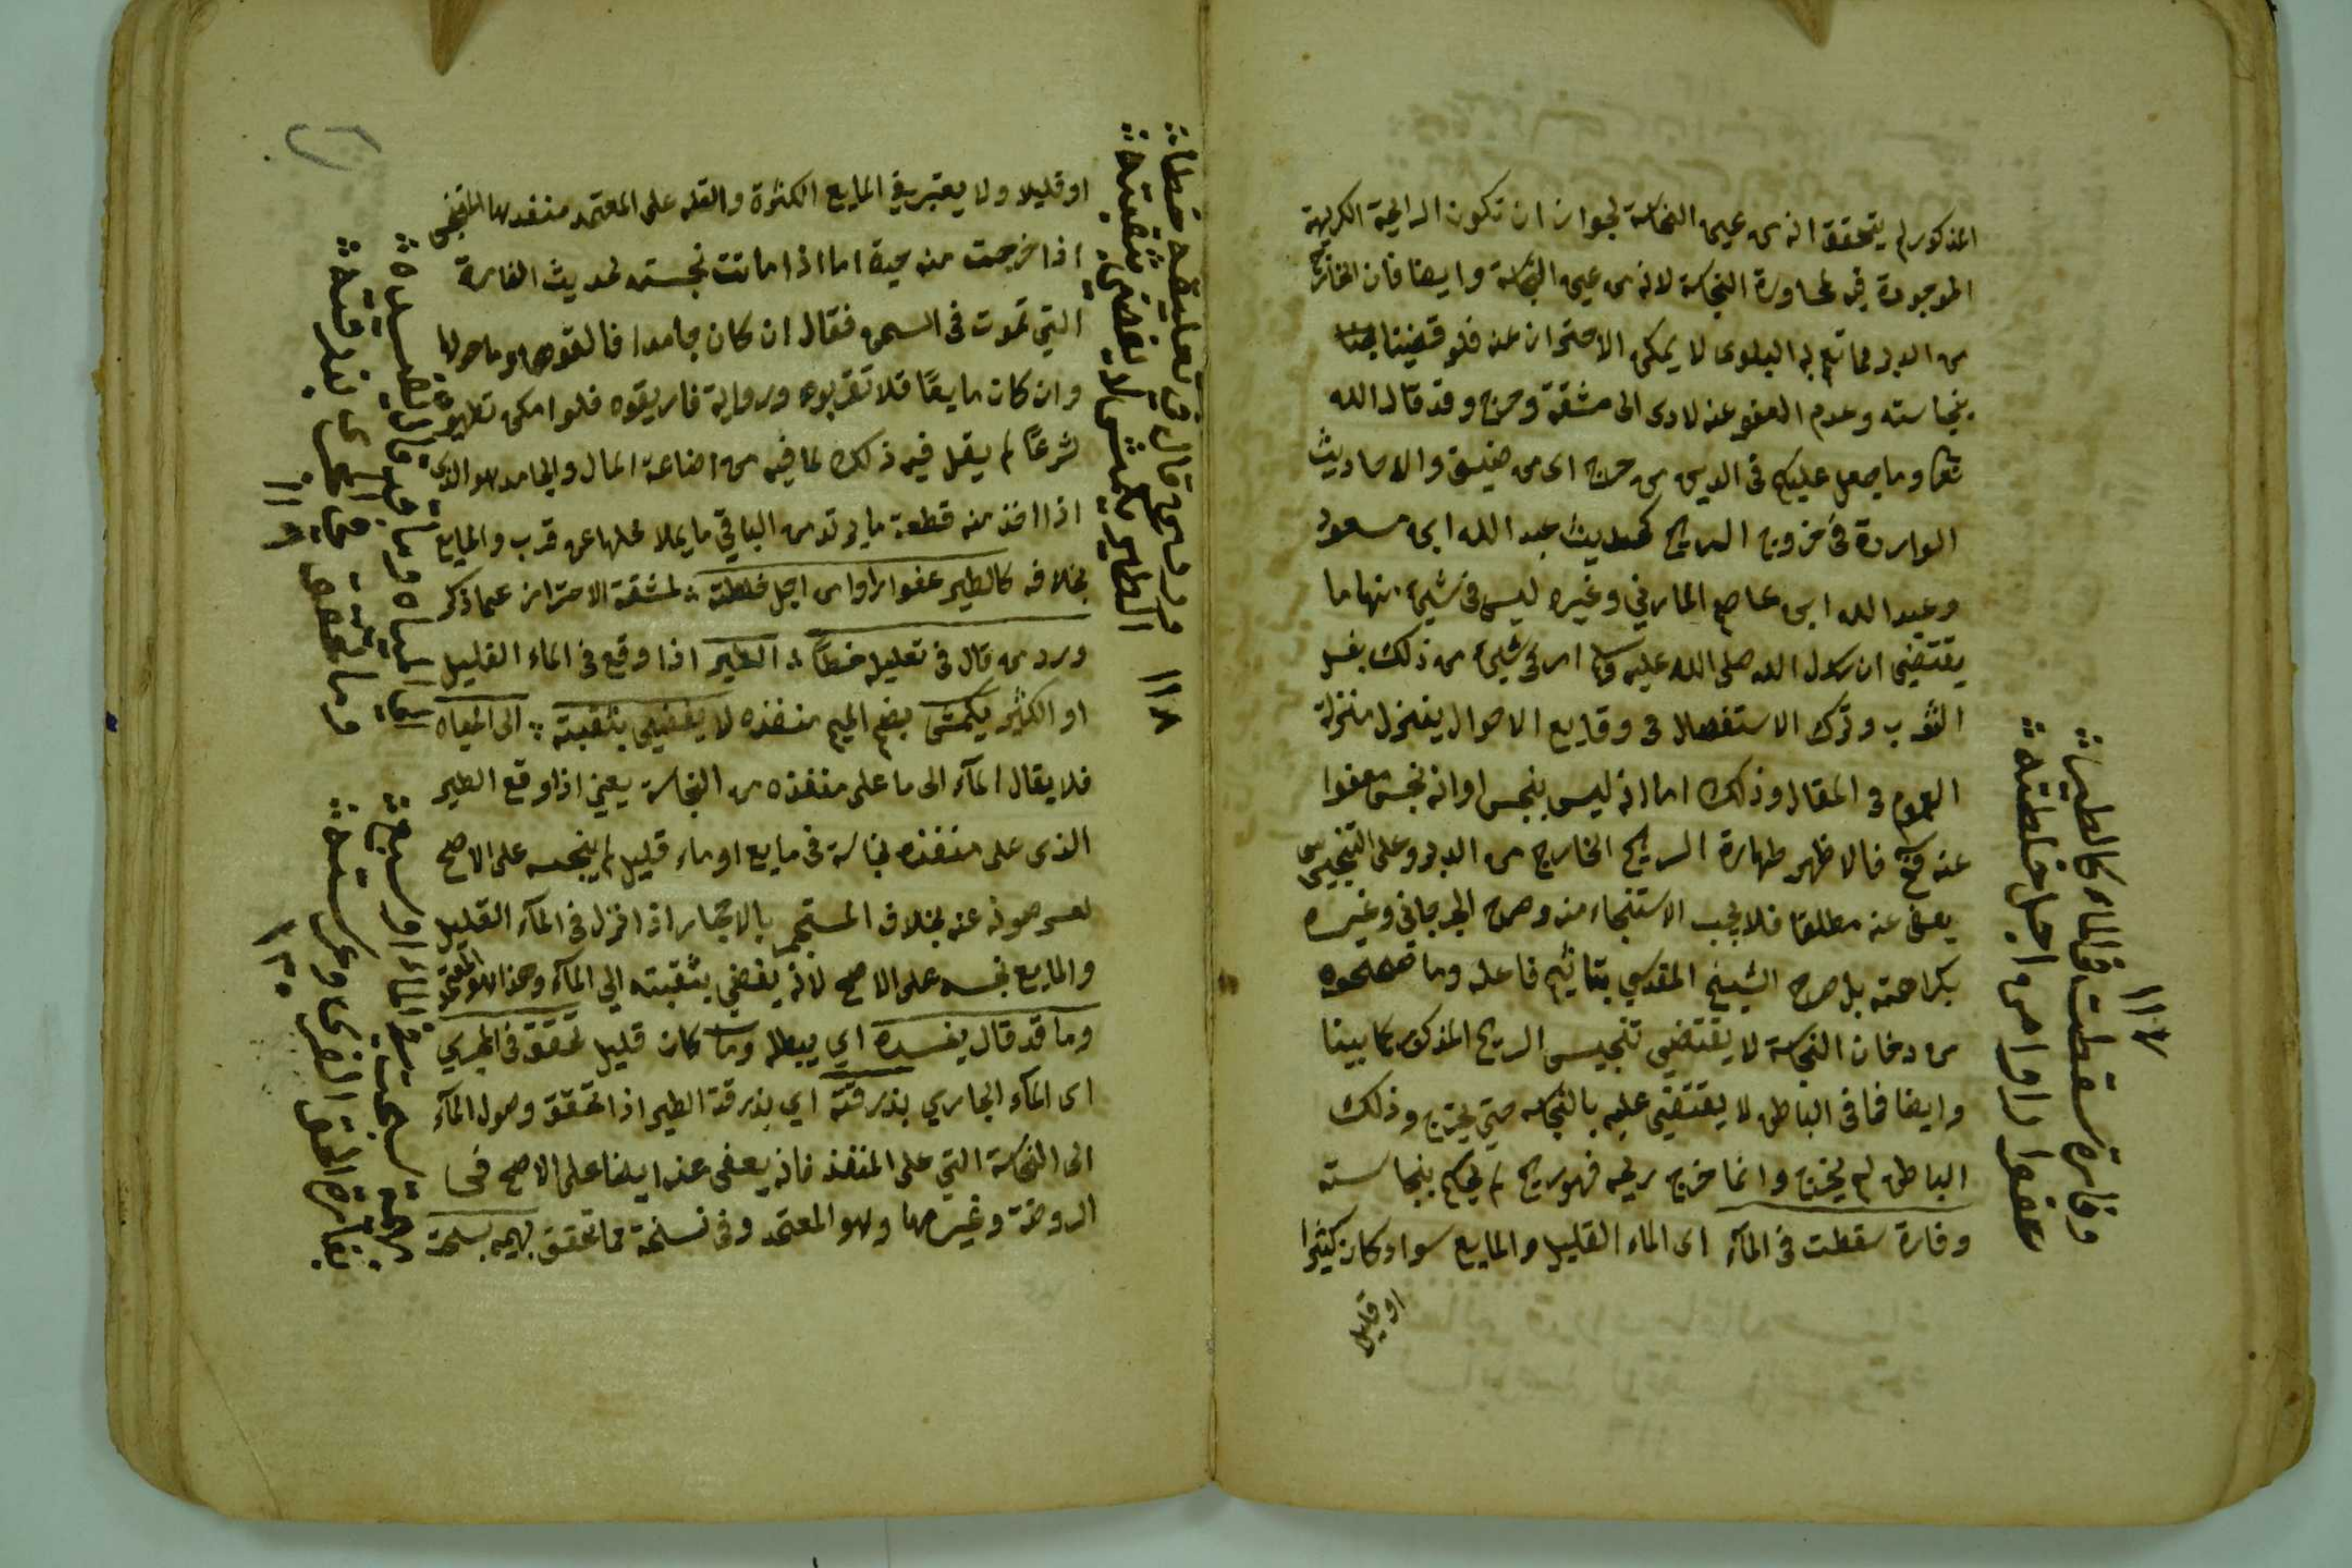 المذكور لم يتحقق انه من عين النجاسة لجواز ان تكون الرايحة الكريهة
الموجودة فيه لمجاورة النجاسة لانه من عين النجاسة وايضا فان الخارج
من الدبر مما تعم به البلوى لا يمكن الاحتراز عنه فلو قضينا
بنجاسته وعدم العفو عنه لادى الى مشقة وحرج وقد قال الله
تعا وما جعل عليكم في الدين من حرج اى من ضيق والاحاديث
الواردة في خروج الريح كحديث عبد الله ابن مسعود
وعبد الله ابن عاصم المازني وغيره ليس في شيء منها ما
يقتضي ان رسول الله صلى الله عليه وسلم امر في شيء من ذلك بغسل
الثوب وترك الاستفصال في وقايع الاحوال ينزل منزلة
العموم في المقال وذلك اما انه ليس بنجس او انه نجس معفوا
عنه فالاظهر طهارة الريح الخارج من الدبر وعلى التنجيس
يعفى عنه مطلقا فلا يجب الاستنجاء منه وصرح الجرجاني وغيره
بكراهته بل صرح الشيخ المقدسي بتاثيم فاعله وما صححوه
من دخان النجاسة لا يقتضي تنجيس الريح المذكور كما بينا
وايضا فما في الباطن لا يقتضى عليه بالنجاسة حتى يخرج وذلك
الباطن لم يخرج وانما خرج ريحه فهو ريح لم يحكم بنجاسته
وفارة سقطت في المآء اى الماء القليل والمايع سواء كان كثيرا
او قليلا
وفارة سقطت في الماء كالطير
عفوا راوا من اجل خلطته
١١٧
او قليلا ولا يعتبر في المايع الكثرة والقله على المعتمد منفدها
اذا خرجت منه حية اما اذا ماتت نجسته لحديث الفارة
التي تموت في السمن فقال ان كان جامدا فالقوها وما حولها
وان كان مايعًا فلا تقربوه وروايه فاريقوه فلو امكن تطهيره
شرعًا لم يقل فيه ذلك لما فيه من اضاعة المال والجامد هو الذى
اذا اخذ منه قطعة ما يرتد من الباقي ما يملا محلها عن قرب والمايع
بخلافه كالطير عفوا راوا من اجل خلطته لمشقة الاحتراز عما ذكر
ورد من قال في تعليله خطأ الطير اذا وقع في الماء القليل
او الكثير يكمش بضم الميم منفذه لا يفضي بثقبته الى المياه
فلا يقال المآء الى ما على منفذه من النجاسة يعني اذا وقع الطير
الذى على منفذه نجاسة في مايع او ماء قليل لم ينجسه على الاصح
لعسر صونه عنه بخلاف المستجمر بالاحجار اذا نزل في المآء القليل
والمايع نجسه على الاصح لانه يفضي بثقبته الي المآء وهذا هو المعتمد
وما قد قال يفسده اي يبطله وما كان قليل تحقق في المجرى
اى المآء الجاري بذرقته اي بذرقة الطير اذا تحقق وصول المآء
الى النجاسة التي على المنفذ فانه يعفى عنه ايضا على الاصح في
الروضة وغيرها وهو المعتمد وفي نسخة فما تحقق بهيمة سبحت
ورد من قال في تعليله خطا
الطير يكمش لا يفضي بثقبته
١١٨
الى المياه وما قد قال يفسده
وما تحقق في المجرى بذرقته
١١٩
بهيمة سبحت في الماء او سبح
١٢٠